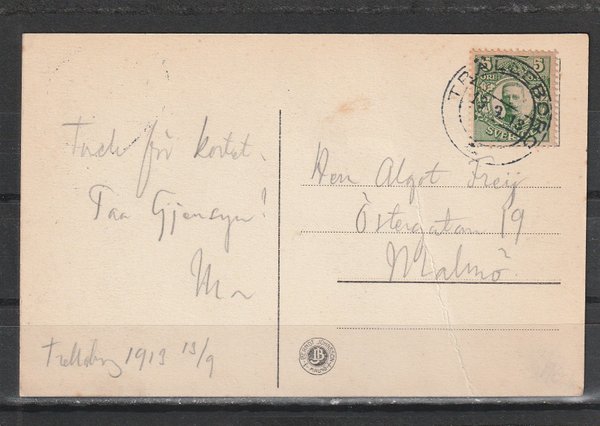 Tack för kortet.
Paa Gjensyn!
Trelleborg 1913 13/9
Herr Algot Freij
Östergatan 19
Malmö
5
SVERIGE
TRÄLLEBORG
13 9 13